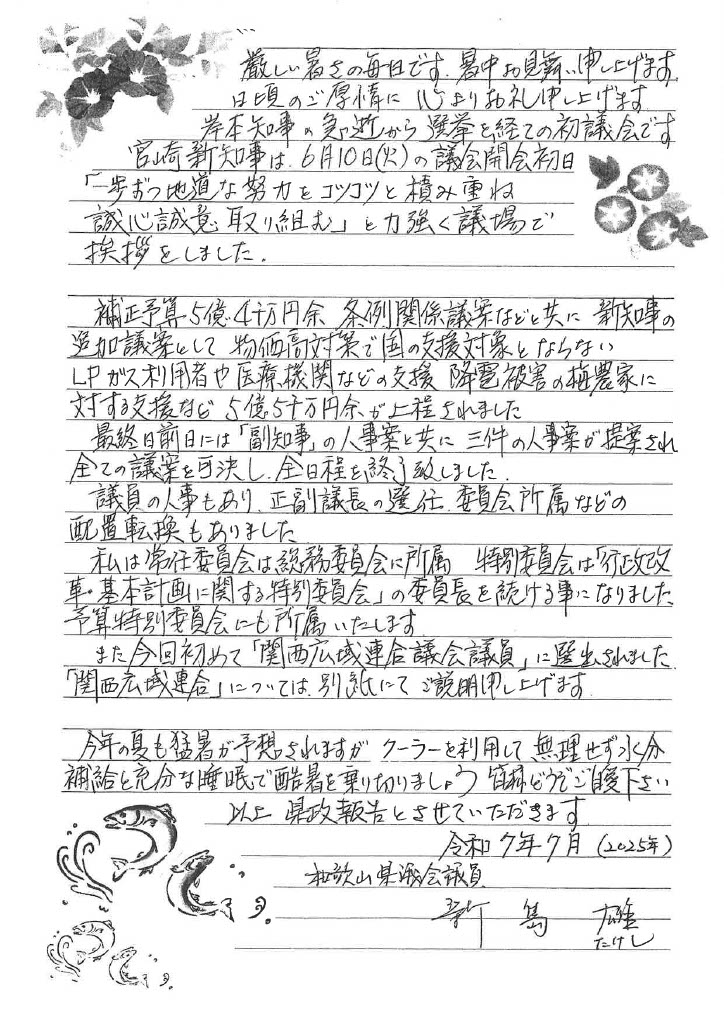 厳しい暑さの毎日です.暑中お見舞い申し上げます.
日頃のご厚情に 心よりお礼申し上げます
岸本知事の急逝から選挙を経ての初議会です
宮崎新知事は、6月10日(火)の議会開会初日
「一歩ずつ地道な努力をコツコツと積み重ね
誠心誠意取り組む」と力強く議場で
挨拶をしました.
補正予算5億4千万円余 条例関係議案などと共に 新知事の
追加議案として 物価高対策で国の支援対象とならない
LPガス利用者や医療機関などの支援 降雹被害の梅農家に
対する支援など 5億5千万円余が上程されました
最終日前日には「副知事」の人事案と共に 三件の人事案が提案され
全ての議案を可決し、全日程を終了致しました.
議員の人事もあり、正副議長の選任、委員会所属などの
配置転換もありました
私は常任委員会は総務委員会に所属 特別委員会は「行政改
革・基本計画に関する特別委員会」の委員長を続ける事になりました
予算特別委員会にも所属いたします
また今回初めて「関西広域連合議会議員」に選出されました
「関西広域連合」については、別紙にて ご説明申し上げます.
今年の夏も猛暑が予想されますが クーラーを利用して 無理せず水分
補給と充分な睡眠で酷暑を乗り切りましょう 皆様どうぞご自愛下さい
以上 県政報告とさせていただきます
令和7年7月 (2025年)
和歌山県議会議員
新 島 雄
たけし